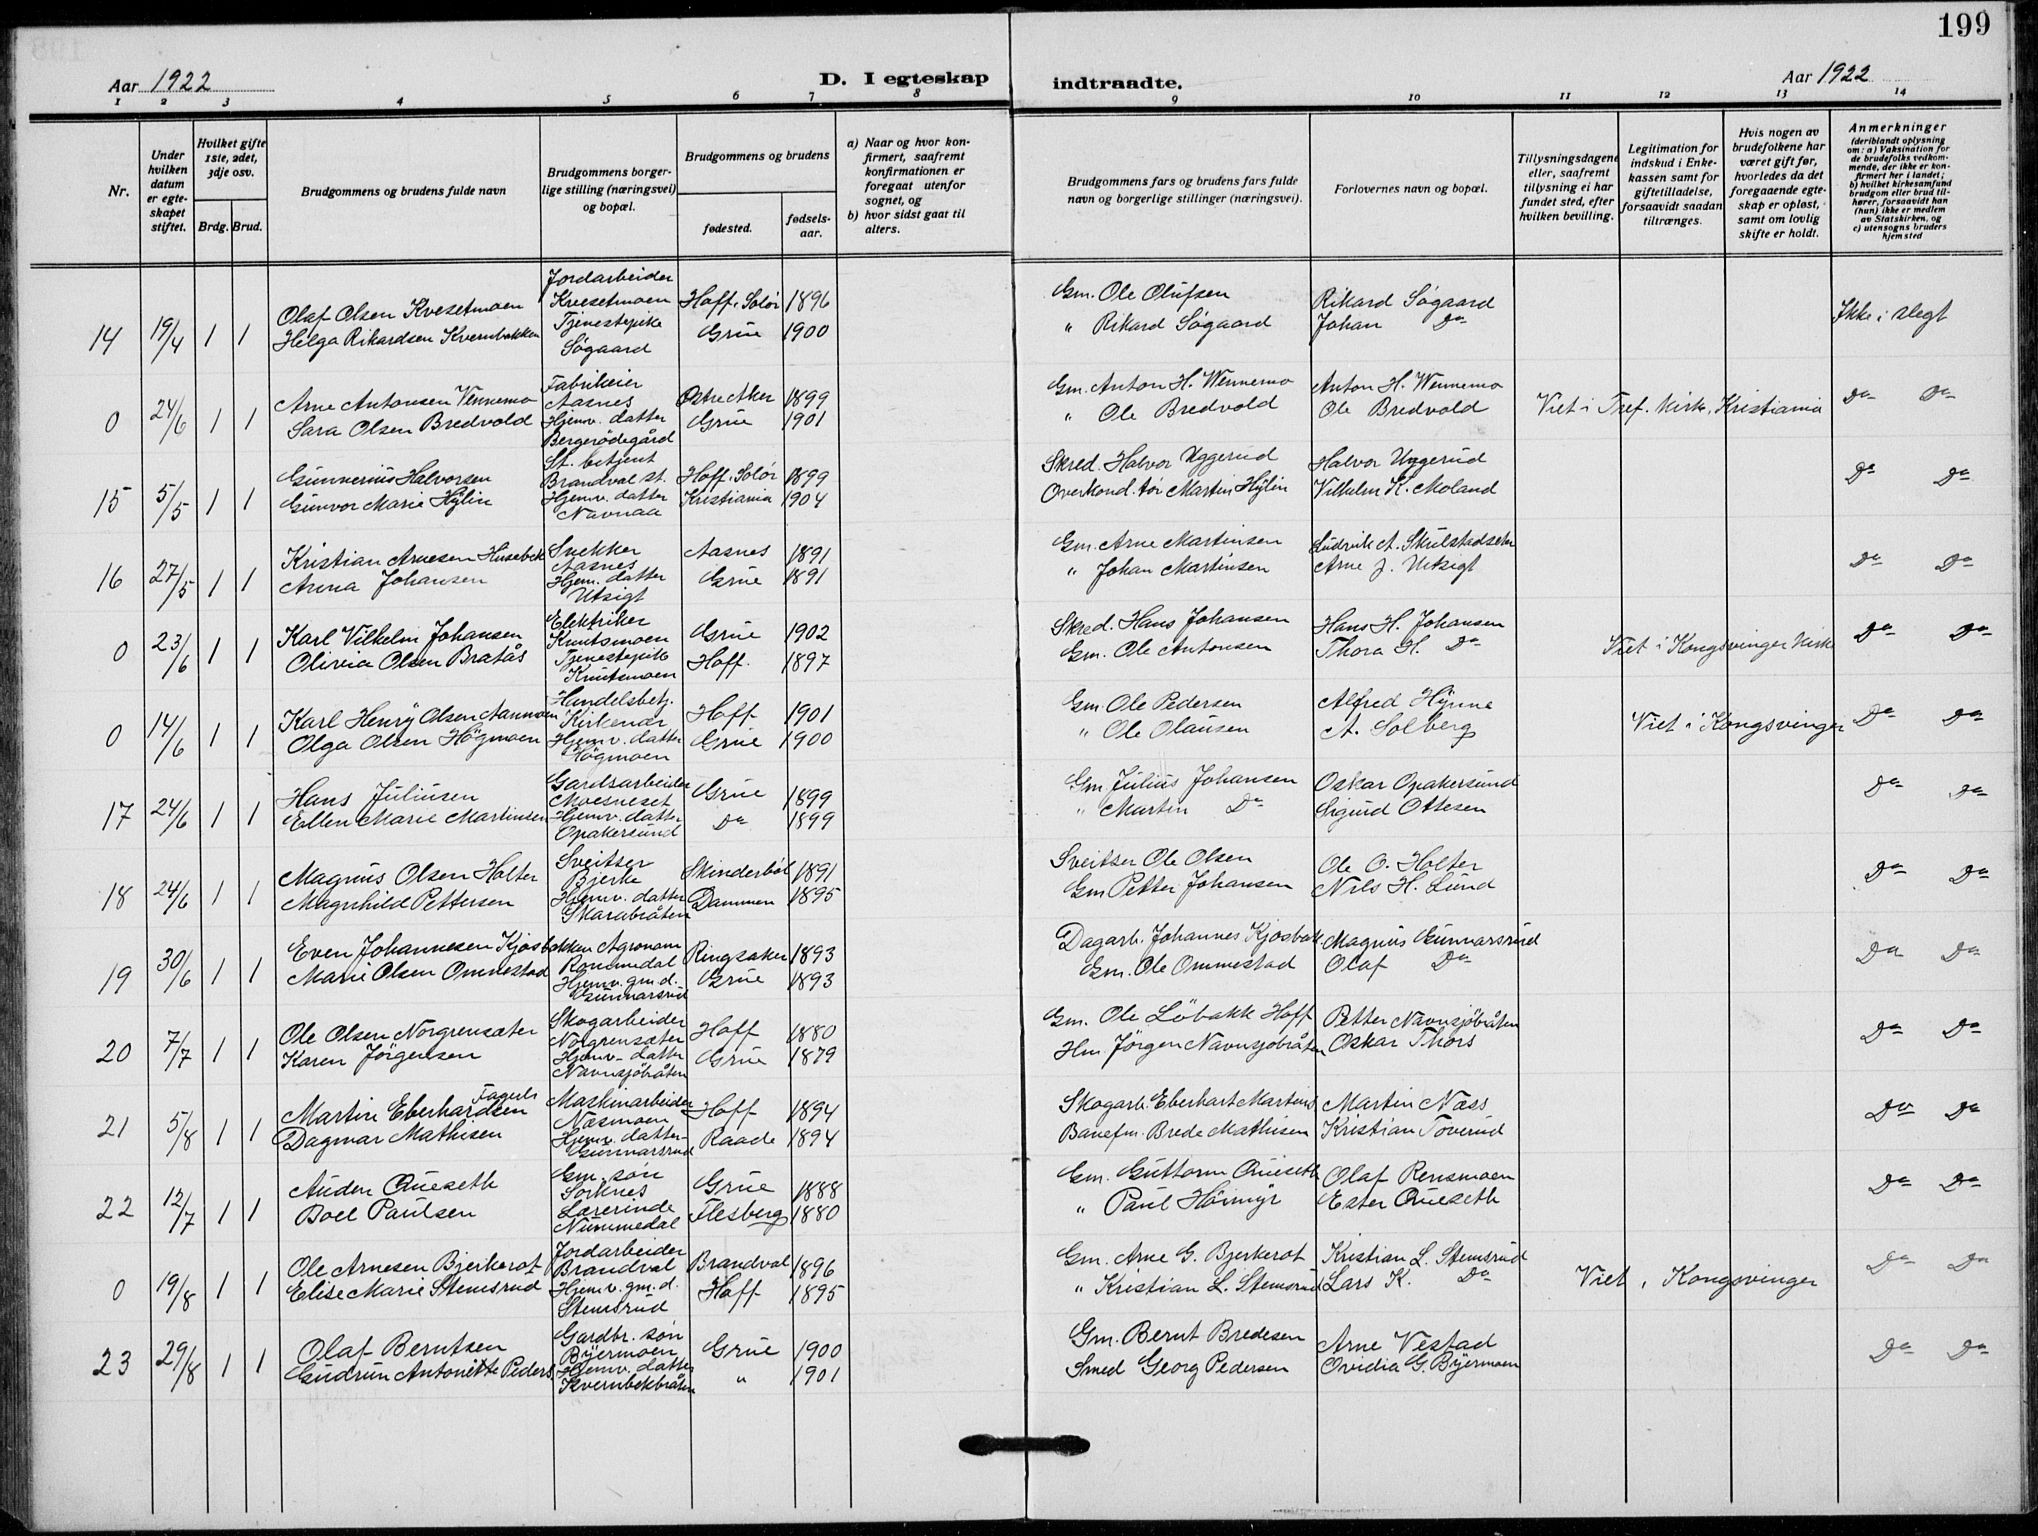 199
Aar 1922
D. I egteskap
indtraadte.
Aar 1922
1 2 3 4 5 6 7 8 9 10 11 12 13 14
Nr.
Under hvilken datum er egteskapet stiftet.
Hvilket gifte 1ste, 2det, 3dje osv.
Brdg. Brud.
Brudgommens og brudens fulde navn
Brudgommens borgerlige stilling (næringsvei) og bopæl.
Brudgommens og brudens
fødested.
fødselsaar.
a) Naar og hvor konfirmert, saafremt konfirmationen er foregaat utenfor sognet, og
b) hvor sidst gaat til alters.
Brudgommens fars og brudens fars fulde navn og borgerlige stillinger (næringsvei).
Forlovernes navn og bopæl.
Tillysningsdagene eller, saafremt tillysning ei har fundet sted, efter hvilken bevilling.
Legitimation for indskud i Enkekassen samt for giftetilladelse, forsaavidt saadan tiltrænges.
Hvis nogen av brudefolkene har været gift før, hvorledes da det foregaaende egteskap er opløst, samt om lovlig skifte er holdt.
Anmerkninger (deriblandt oplysning om: a) Vaksination for de brudefolks vedkommende, der ikke er konfirmert her i landet; b) hvilket kirkesamfund brudgom eller brud tilhører, forsaavidt han (hun) ikke er medlem av Statskirken, og c) utensogns bruders hjemsted
14 19/4 1 1 Olaf Olsen Kvesetmoen Jordarbeider Kvesetmoen Hoff, Solør 1896 Gm. Ole Olufsen Rikard Søgaard Ikke i slegt
Helga Rikardsen Kvernbakken Tjenestepike Søgaard Grue 1900 " Rikard Søgaard Johan Do
0 24/6 1 1 Arne Antonsen Vennemo Fabrikeier Aasnes Østre Aker 1899 Gm. Anton H. Wennemo Anton H. Wennemo Viet i Tref. kirke, Kristiania Do Do
Sara Olsen Bredvold Hjemv. datter Bergerødegård Grue 1901 " Ole Bredvold Ole Bredvold
15 5/5 1 1 Gunnerius Halvorsen St. betjent Brandval st. Hoff, Solør 1899 Skred. Halvor Uggerud Halvor Uggerud Do Do
Gunvor Marie Hylin Hjemv. datter Navnaa Kristiania 1904 Overkond.tør Martin Hylin Vilhelm K. Moland
16 27/5 1 1 Kristian Arnesen Husebek Snekker Aasnes Aasnes 1891 Gm. Arne Martinsen Ludvik A. Skulstadseter Do Do
Anna Johansen Hjem. datter Utsigt Grue 1891 " Johan Martinsen Arne J. Utsigt
0 23/6 1 1 Karl Vilhelm Johansen Elektriker Knutsmoen Grue 1902 Skred. Hans Johansen Hans H. Johansen Viet i Kongsvinger kirke Do Do
Olivia Olsen Bratås Tjenestepike Knutsmoen Hoff. 1897 Gm. Ole Antonsen Thora H. Do
0 14/6 1 1 Karl Henry Olsen Aamoen Handelsbetj. Kirkenær Hoff 1901 Gm. Ole Pedersen Alfred Hynne Viet i Kongsvinger Do Do
Olga Olsen Högmoen Hjemv. datter Högmoen Grue 1900 " Ole Olausen A. Solberg
17 24/6 1 1 Hans Juliusen Gardsarbeider Moesneset Grue 1899 Gm Julius Johansen Oskar Opakersund Do Do
Ellen Marie Martinsen Hjemv. datter Opakersund Do 1899 " Martin Do Sigurd Ottesen
18 24/6 1 1 Magnus Olsen Holter Sveitser Bjerke Skinderböl 1891 Sveitser Ole Olsen Ole O. Holter Do Do
Magnhild Pettersen Hjemv. datter Skarabråten Dammen 1895 Gm Petter Johansen Nils H. Lund
19 30/6 1 1 Even Johannesen Kjosbakken Agronom Rommedal Ringsaker 1893 Dagarb. Johannes Kjosbak. Magnus Gunnarsrud Do Do
Marie Olsen Ommestad Hjemv. gm. d. Gunnarsrud Grue 1893 Gm. Ole Ommestad Olaf Do
20 7/7 1 1 Ole Olsen Norgrensæter Skogarbeider Norgrensæter Hoff 1880 Gm. Ole Löbakk Hoff Petter Navnsjöbråten Do Do
Karen Jörgensen Hjemv. datter Navnsjöbråten Grue 1879 Hm. Jörgen Navnsjobråten Oskar Thors
21 5/8 1 1 Martin Eberhardsen Maskinarbeider Næsmoen Hoff 1894 Skogarb. Eberhart Martins. Martin Næss Do Do
Dagmar Mathisen Hjemv. datter Gunnarsrud Raade 1894 Banefm. Brede Mathisen Kristian Toverud
22 12/7 1 1 Auden Queseth Gm. søn Sorknes Grue 1888 Gm. Guttorm Queseth Olaf Rensmoen Do Do
Boel Paulsen Lærerinde Nummedal Flesberg 1880 " Paul Höimyr Ester Queseth
0 19/8 1 1 Ole Arnesen Bjerkerot Jordarbeider Brandval Brandval 1896 Gm. Arne G. Bjerkerot Kristian L. Stemsrud Viet i Kongsvinger Do Do
Elise Marie Stemsrud Hjemv. gm. d. Stemsrud Hoff 1895 " Kristian L. Stemsrud Lars K. Do
23 29/8 1 1 Olaf Berntsen Gardbr. søn Byermoen Grue 1900 Gm. Bernt Bredesen Arne Vestad Do Do
Gudrun Antonette Peders. Hjemv. datter Kvernbekbråten " 1901 Smed Georg Pedersen Ovidia G. Byermoen